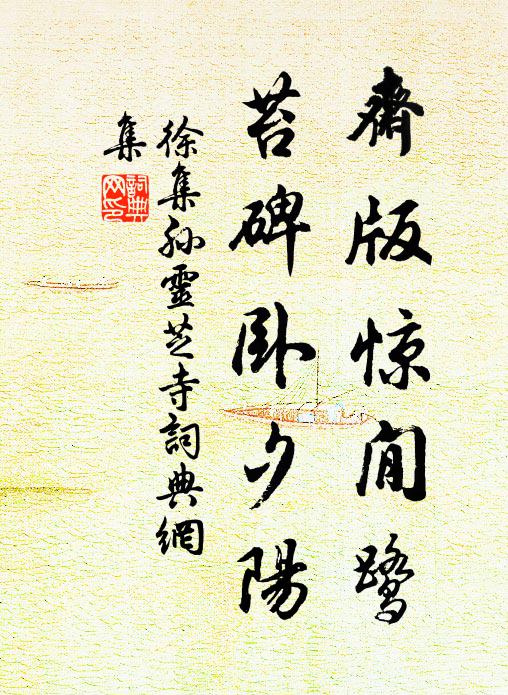 齋版惊閒鹭
苔碑卧夕陽
徐集孙靈芝寺詞典網
集
詞典
网印